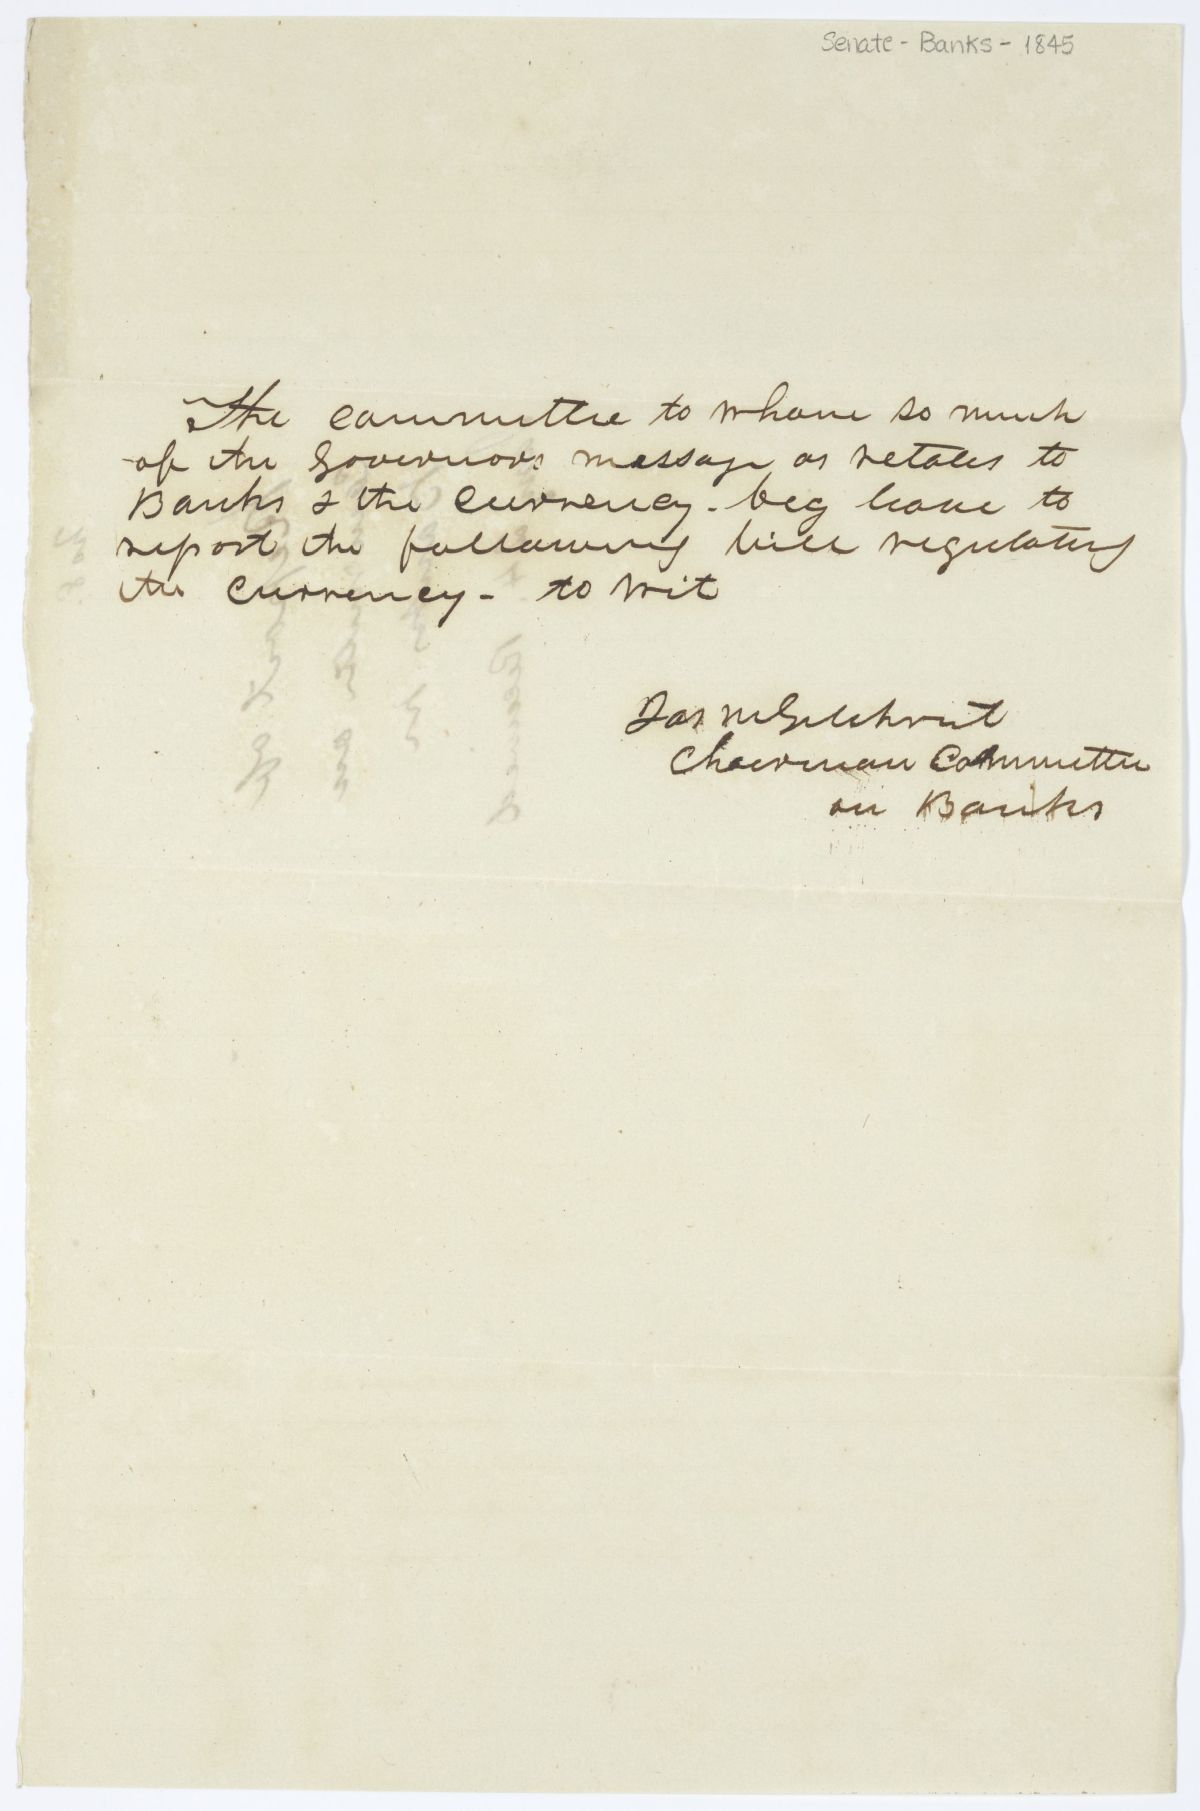 Senate - Banks - 1845
The committee to whom so much
of the Governors message as relates to
Banks & the Currency - beg leave to
report the following bill regulating
the Currency - to wit
Jas McGilchrist
Chairman Committee
on Banks